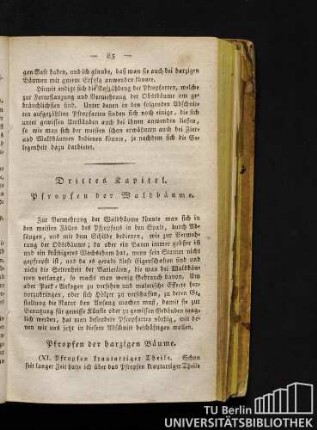 — 85 —
gen Saft haben, und ich glaube, daß man sie auch bei harzigen
Bäumen mit gutem Erfolg anwenden könnte.
Hiemit endigt sich die Aufzählung der Pfropfarten, welche
zur Fortpflanzung und Vermehrung der Obstbäume am ge-
bräuchlichsten sind. Unter denen in den folgenden Abschnit-
ten aufgezählten Pfropfarten finden sich noch einige, die sich
unter gewissen Umständen bei ihnen anwenden ließen,
so wie man sich der meisten schon erwähnten auch bei Zier-
und Waldbäumen bedienen könnte, je nachdem sich die Ge-
legenheit dazu darbietet.
Drittes Kapitel.
Pfropfen der Waldbäume.
Zur Vermehrung der Waldbäume könnte man sich in
den meisten Fällen des Pfropfens in den Spalt, durch Ab-
längen, und mit dem Schilde bedienen, wie zur Vermeh-
rung der Obstbäume; da aber ein Baum immer größer ist
und ein kräftigeres Wachsthum hat, wenn sein Stamm nicht
gepfropft ist, und da es gerade diese Eigenschaften sind und
nicht die Seltenheit der Varietäten, die man
von Waldbäumen
verlangt, so macht man wenig Gebrauch davon. Um
aber Park-Anlagen zu verschönern und malerische Effecte hervor-
zubringen, oder sich Hölzer zu verschaffen, zu deren Ge-
staltung die Natur den Anfang machen muß, damit sie zur
Benutzung für gewisse Künste oder zu gewissen Gebäuden nützlich
werden, hat man besondere Pfropfarten nöthig, mit de-
nen wir uns jetzt in diesem Abschnitt beschäftigen wollen.
Pfropfen der harzigen Bäume.
(XI. Pfropfen krautartiger Theile. Schon
seit langer Zeit hatte ich über das Pfropfen krautartiger Theile
TU Berlin
UNIVERSITÄTSBIBLIOTHEK